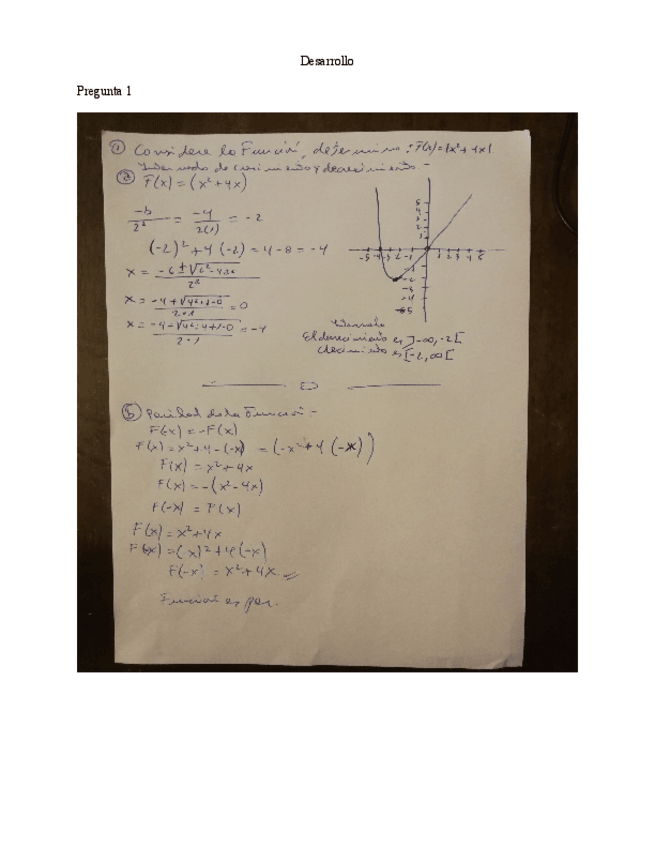 Desarrollo
Pregunta 1
① Considere la Función, determine: F(x)=|x²+4x|
Intervalo de crecimiento y decrecimiento.-
ⓐ F(x) = (x²+4x)
-b/2a = -4/2(1) = -2
(-2)² + 4(-2) = 4 - 8 = -4
x =
x = = 0
x = = -4
5
4
3
2
1
-5 -4 -3 -2 -1 1 2 3 4 5
Intervalo
El decrecimiento es ]-∞,-2[
crecimiento es [-2,∞[
ⓑ Paridad de la Función:-
F(-x) = -F(x)
F(x) = x²+4-(-x) = (-x²+4(-x))
F(x) = x²+4x
F(x) = -(x²-4x)
F(-x) = F(x)
F(x) = x²+4x
F(-x) = (-x)²+4(-x)
F(-x) = x²+4x
Función es par.